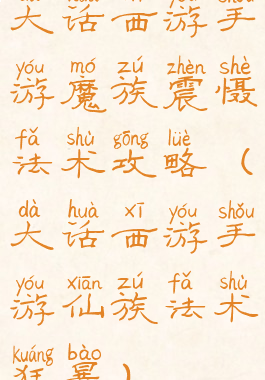 大话西游手
yóu mó zú zhèn shè
游魔族震慑
fǎ shù gōng lüè
法术攻略（
dà huà xī yóu shǒu
大话西游手
yóu xiān zú fǎ shù
游仙族法术
kuáng bào
狂暴）